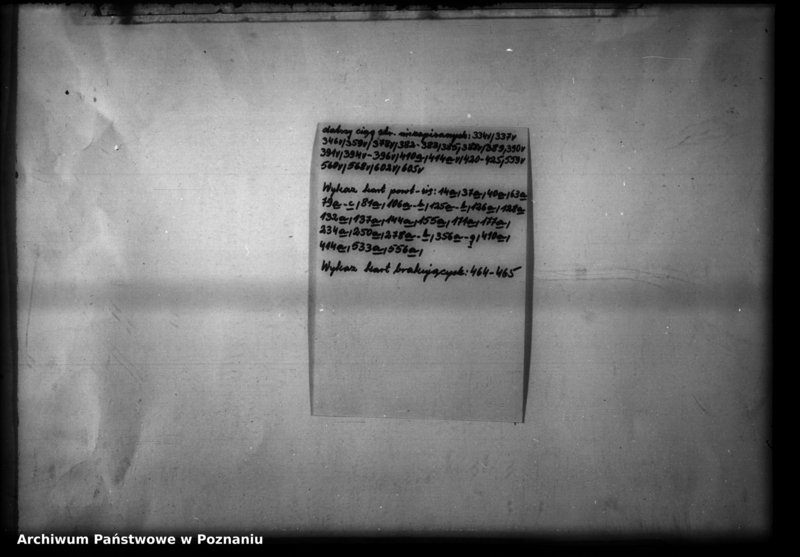 dalszy ciąg str. niezapisanych: 334v, 337v
346v, 359v, 378v, 382-383, 385, 388v, 389, 390v
391v, 394v-396v, 410a, 414av, 420-425, 559v
560v, 568v, 602v, 605v
Wykaz kart powt-ych: 14a, 37a, 40a, 63a
79a-c, 81a, 106a-b, 125a-b, 126a, 128a
132a, 137a, 144a, 155a, 171a, 177a,
234a, 250a, 278a-b, 356a-g, 410a,
414a, 533a, 556a,
Wykaz kart brakujących: 464-465
Archiwum Państwowe w Poznaniu